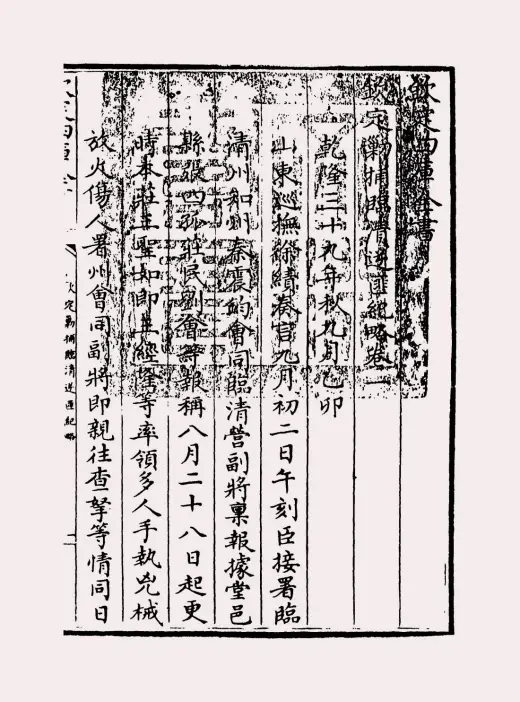 欽定四庫全書
欽定勦捕臨清逆匪紀略卷一
乾隆三十九年秋九月乙卯
山東巡撫徐績奏言九月初二日午刻臣接署臨
清州知州秦震鈞會同臨清營副將稟報據堂邑
縣張四孤莊民劉會報稱八月二十八日起更
時本莊王聖如即王經隆等率領多人手執兇械
放火傷人署州會同副將即親往查拏等情同日
欽定勦捕臨清逆匪紀略